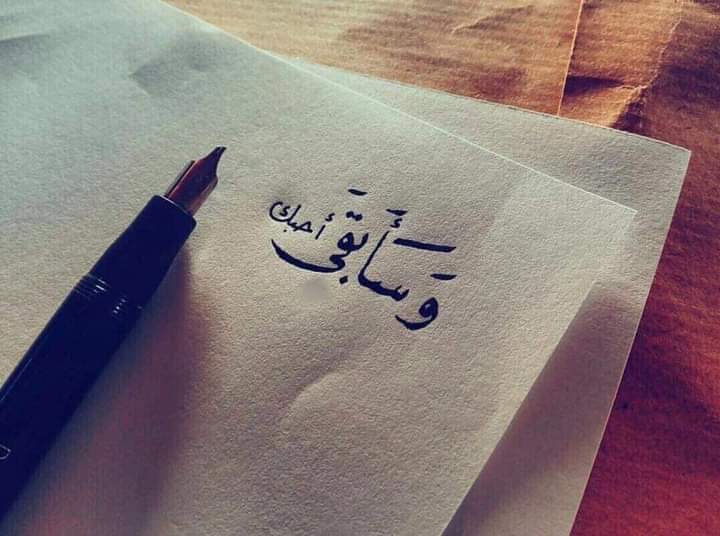 وَسَأَبقَى أحبك